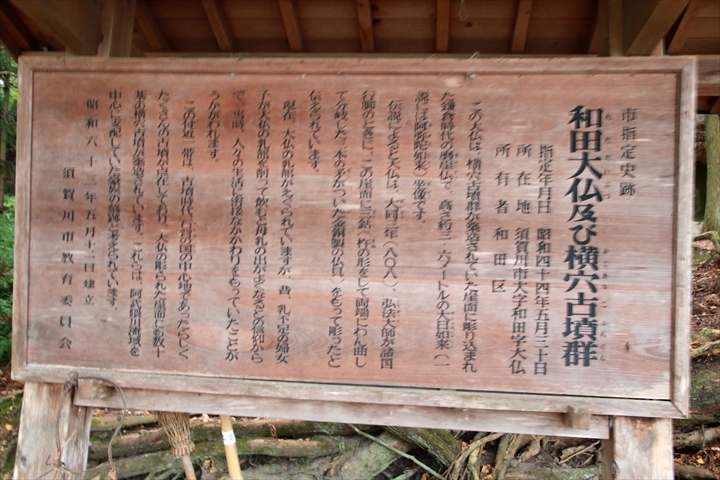 市指定史跡
和田大仏及び横穴古墳群
指定年月日 昭和四十四年五月三十日
所在地 須賀川市大字和田字大仏
所有者 和田区
この大仏は、横穴古墳群が築造されていた崖面に彫り込まれ
た鎌倉時代の磨崖仏で、高さ約三・六メートルの大日如来(一
説には阿弥陀如来)坐像です。
伝説によると大仏は、大同三年(八〇八)、弘法大師が諸国
行脚のときに、この崖面に三鈷(杵の形をして両端にわん曲し
て分岐した三本の矛がついた金銅製の仏具)をもって彫ったと
伝えられています。
現在、大仏の乳部がえぐられていますが、昔、乳不足の婦女
子が大仏の乳部を削って飲むと母乳の出がよくなるとの信仰から
で、当時、人々の生活に密接なかかわりをもっていたことが
うかがわれます。
この付近一帯は、古墳時代に石背国の中心地であったらしく
たくさんの古墳が点在しており、大仏の彫られた崖面にも数十
基の横穴古墳が築造されています。これらは、阿武隈川流域を
中心に支配していた豪族の墳墓と考えられています。
昭和六十三年五月十二日建立
須賀川市教育委員会